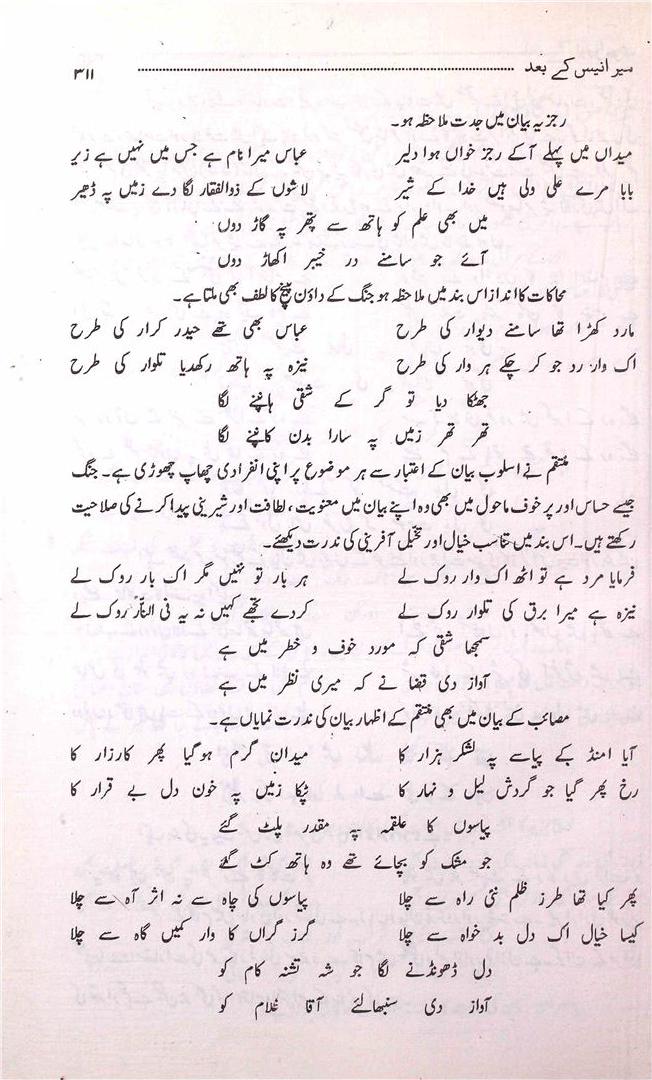 میر انیس کے بعد ۳۱۱
رجزیہ بیان میں جدت ملاحظہ ہو۔
میداں میں پہلے آکے رجز خواں ہوا دلیر عباس میرا نام ہے جس میں نہیں ہے زیر
بابا مرے علی ولی ہیں خدا کے شیر لاشوں کے ذوالفقار لگا دے زمیں پہ ڈھیر
میں بھی علم کو ہاتھ سے پتھر پہ گاڑ دوں
آئے جو سامنے در خیبر اکھاڑ دوں
محاکات کا انداز اس بند میں ملاحظہ ہو جنگ کے داؤں پیچ کا لطف بھی ملتا ہے۔
مارد کھڑا تھا سامنے دیوار کی طرح عباس بھی تھے حیدر کرار کی طرح
اک وار رد جو کر چکے ہر وار کی طرح نیزہ پہ ہاتھ رکھدیا تلوار کی طرح
جھٹکا دیا تو گر کے شقی ہانپنے لگا
تھر تھر زمیں پہ سارا بدن کانپنے لگا
منتقم نے اسلوب بیان کے اعتبار سے ہر موضوع پر اپنی انفرادی چھاپ چھوڑی ہے۔ جنگ
جیسے حساس اور پر خوف ماحول میں بھی وہ اپنے بیان میں معنویت، لطافت اور شیرینی پیدا کرنے کی صلاحیت
رکھتے ہیں۔ اس بند میں تناسب خیال اور تخیل آفرینی کی ندرت دیکھئے۔
فرمایا مرد ہے تو اٹھ اک وار روک لے ہر بار تو نہیں مگر اک بار روک لے
نیزہ ہے میرا برق کی تلوار روک لے کردے تجھے کہیں نہ یہ فی النّار روک لے
سمجھا شقی کہ مورد خوف و خطر میں ہے
آواز دی قضا نے کہ میری نظر میں ہے
مصائب کے بیان میں بھی منتقم کے اظہار بیان کی ندرت نمایاں ہے۔
آیا امنڈ کے پیاسے پہ لشکر ہزار کا میدان گرم ہوگیا پھر کارزار کا
رخ پھر گیا جو گردش لیل و نہار کا ٹپکا زمیں پہ خون دل بے قرار کا
پیاسوں کا علقمہ پہ مقدر پلٹ گئے
جو مشک کو بچائے تھے وہ ہاتھ کٹ گئے
پھر کیا تھا طرز ظلم نئی راہ سے چلا پیاسوں کی چاہ سے نہ اثر آہ سے چلا
کیسا خیال اک دل بد خواہ سے چلا گرز گراں کا وار کمیں گاہ سے چلا
دل ڈھونڈنے لگا جو شہ تشنہ کام کو
آواز دی سنبھالئے آقا غلام کو